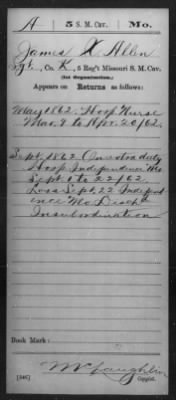 A 5 S. M. Cav. Mo.
James X. Allen
Co. K, 5 Reg't Missouri S. M. Cav.
(1st Organization.)
Appears on
Returns as follows:
May 1862. Hosp. Nurse
Mar. 9 to Apr. 20/62.
Sept. 1862 On extra duty
Hosp. Independence Mo
Sept. 1 to 22/62.
Loss Sept. 22 Independ
ence Mo Disch
Insubordination
Book Mark:
McLaughlin
(546) Copyist.